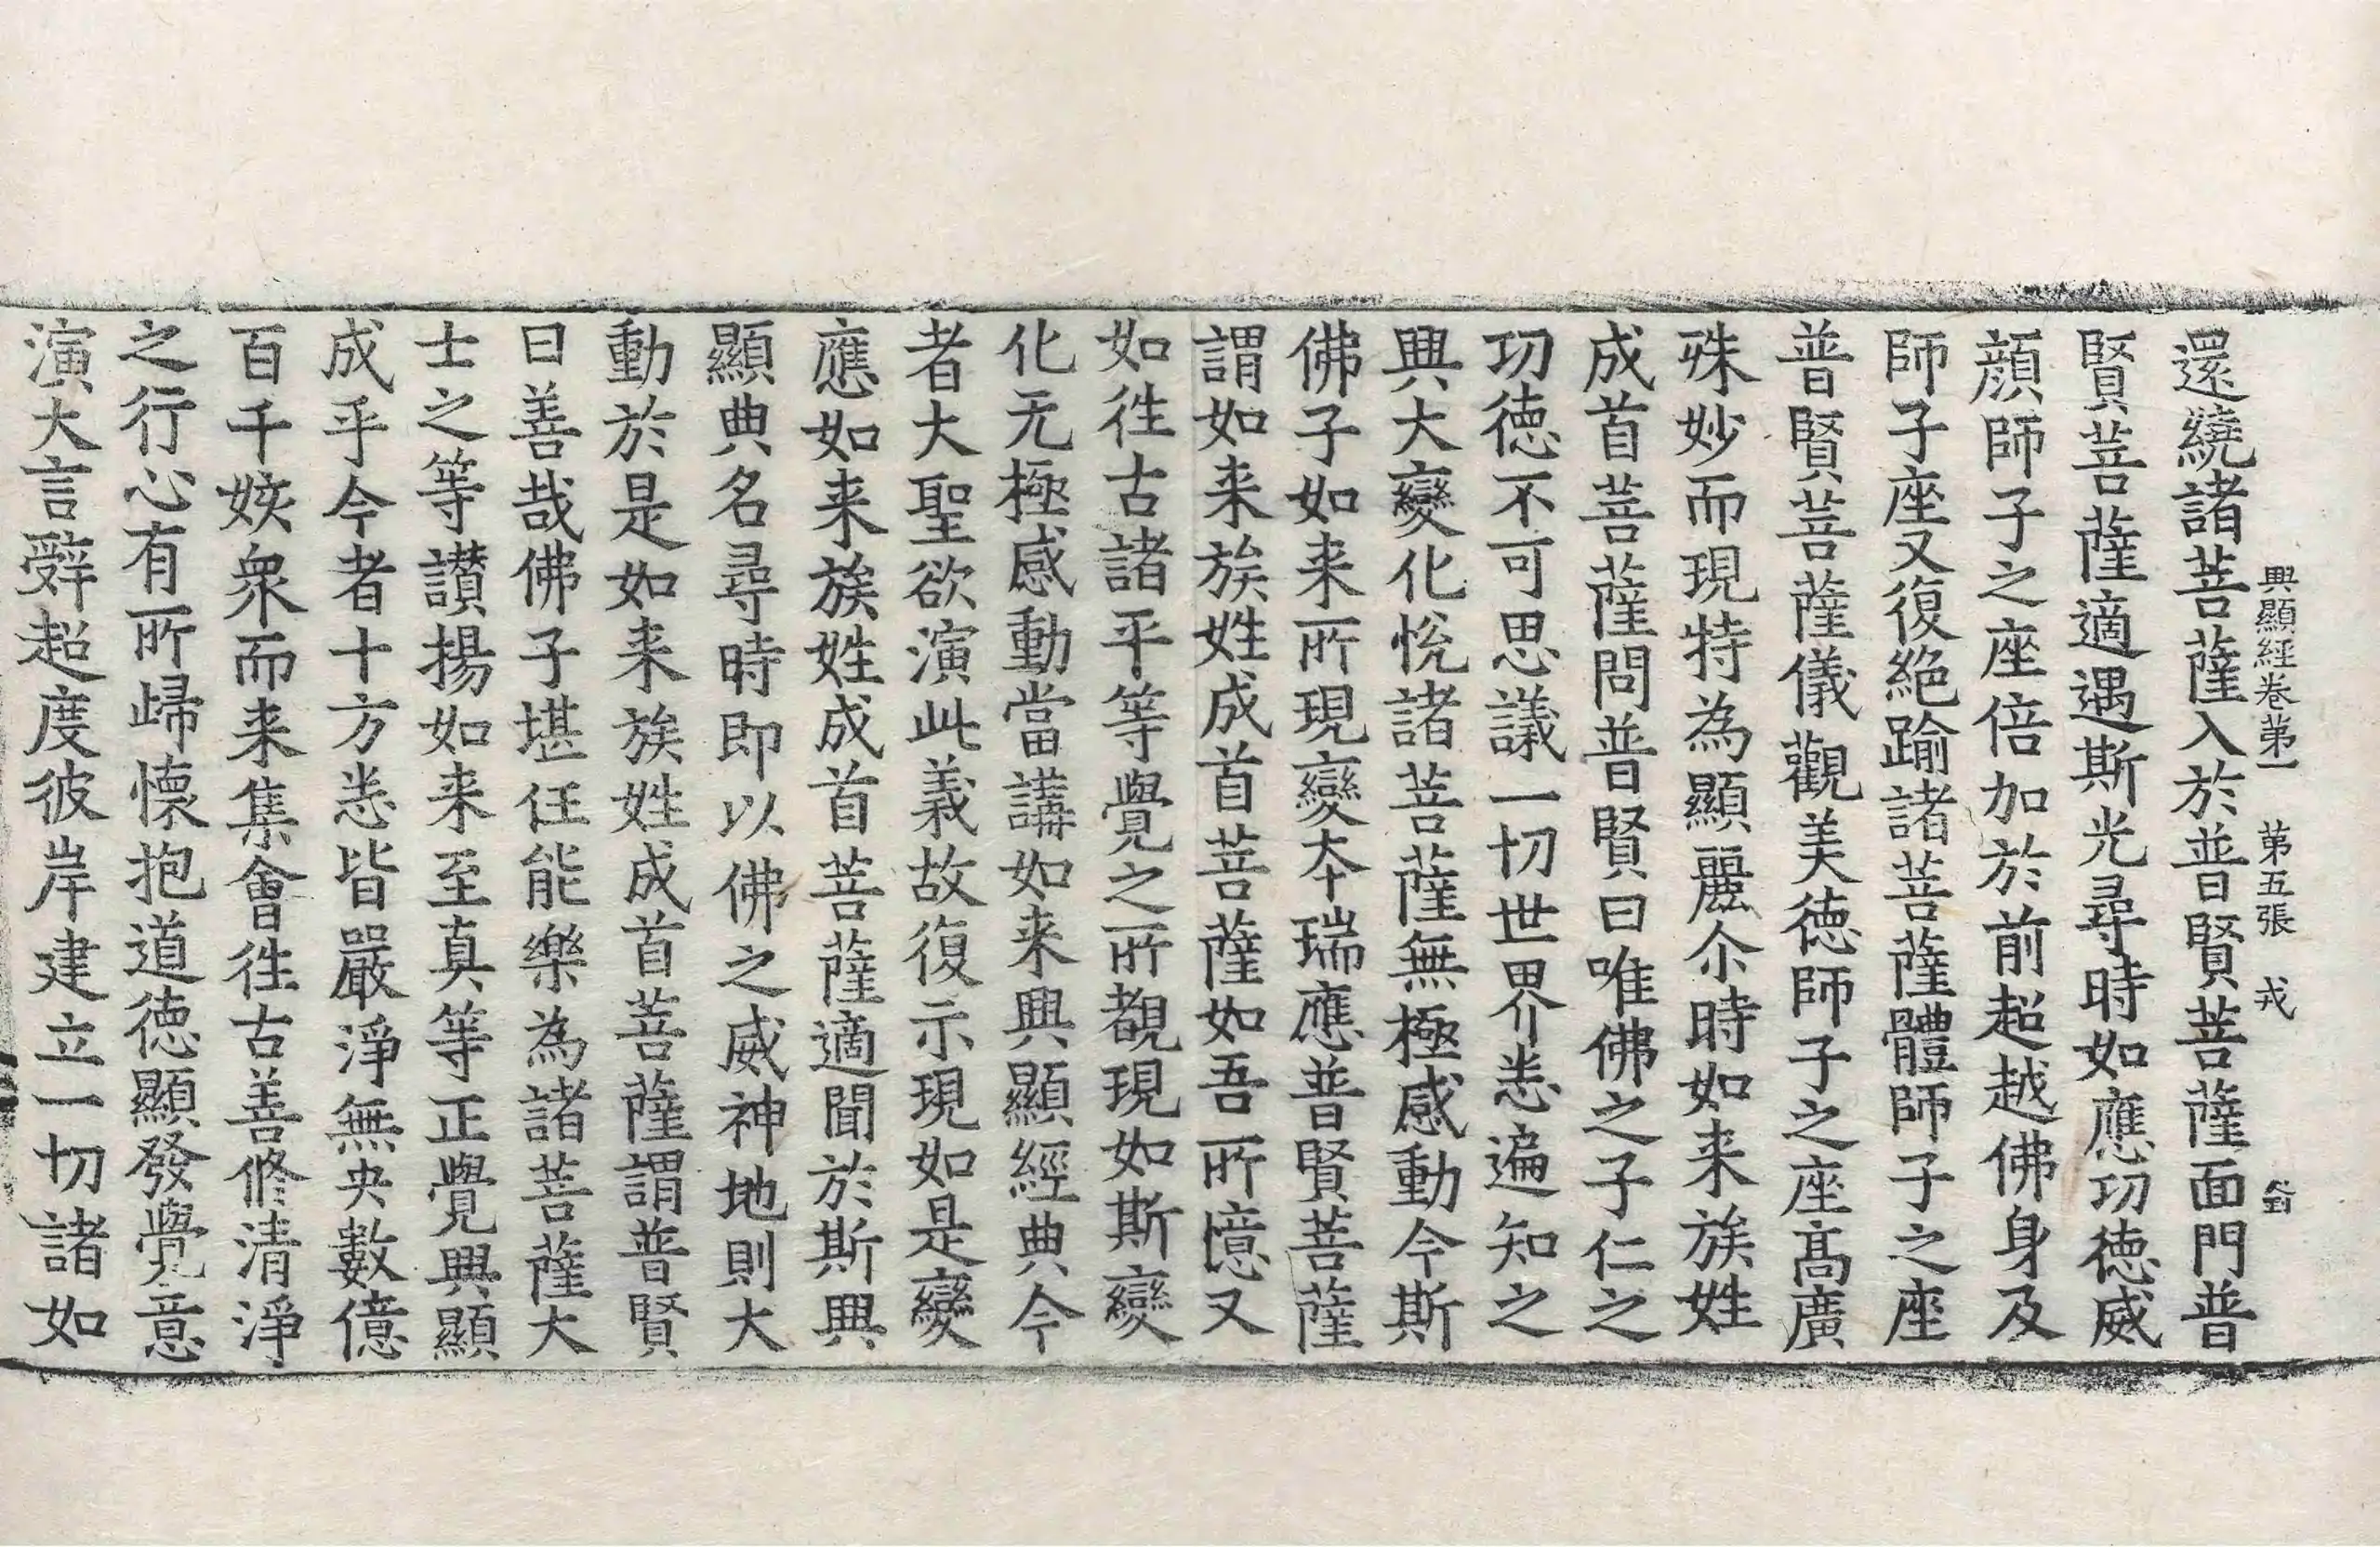 興顯經卷第一 第五張 戎
還繞諸菩薩入於普賢菩薩面門普
賢菩薩適遇斯光尋時如應功徳威
顔師子之座倍加於前超越佛身及
師子座又復絕踰諸菩薩體師子之座
普賢菩薩儀觀美徳師子之座髙廣
殊妙而現特為顯麗尒時如来族姓
成首菩薩問普賢曰唯佛之子仁之
功徳不可思議一切世界悉遍知之
興大變化恱諸菩薩無極感動今斯
佛子如来所現變夲瑞應普賢菩薩
謂如来族姓成首菩薩如吾所憶又
如徃古諸平等覺之所覩現如斯變
化无極感動當講如来興顯經典今
者大聖欲演此義故復示現如是變
應如来族姓成首菩薩適聞於斯興
顯典名尋時即以佛之威神地則大
動於是如来族姓成首菩薩謂普賢
曰善哉佛子堪任能樂為諸菩薩大
士之等讃揚如来至真等正覺興顯
成乎今者十方悉皆嚴淨無央數億
百千姟衆而来集會徃古善修清淨
之行心有所歸懷抱道徳顯發覺意
演大言辭超度彼岸建立一切諸如